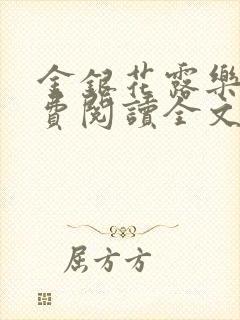 金銀花露樂
費閱讀全文
屈方方